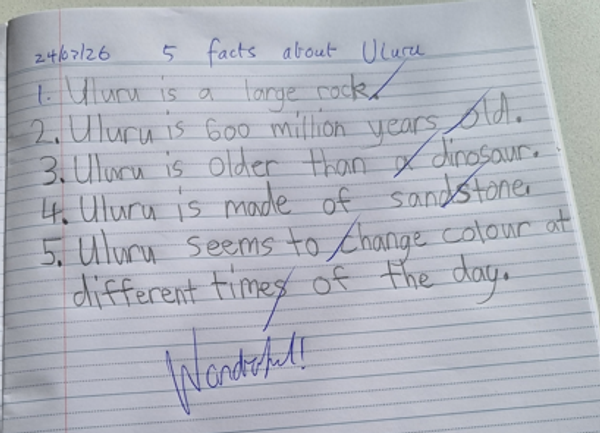 24/02/26 5 facts about Uluru
1. Uluru is a large rock.
2. Uluru is 600 million years old.
3. Uluru is older than a dinosaur.
4. Uluru is made of sandstone.
5. Uluru seems to change colour at
different times of the day.
Wonderful!